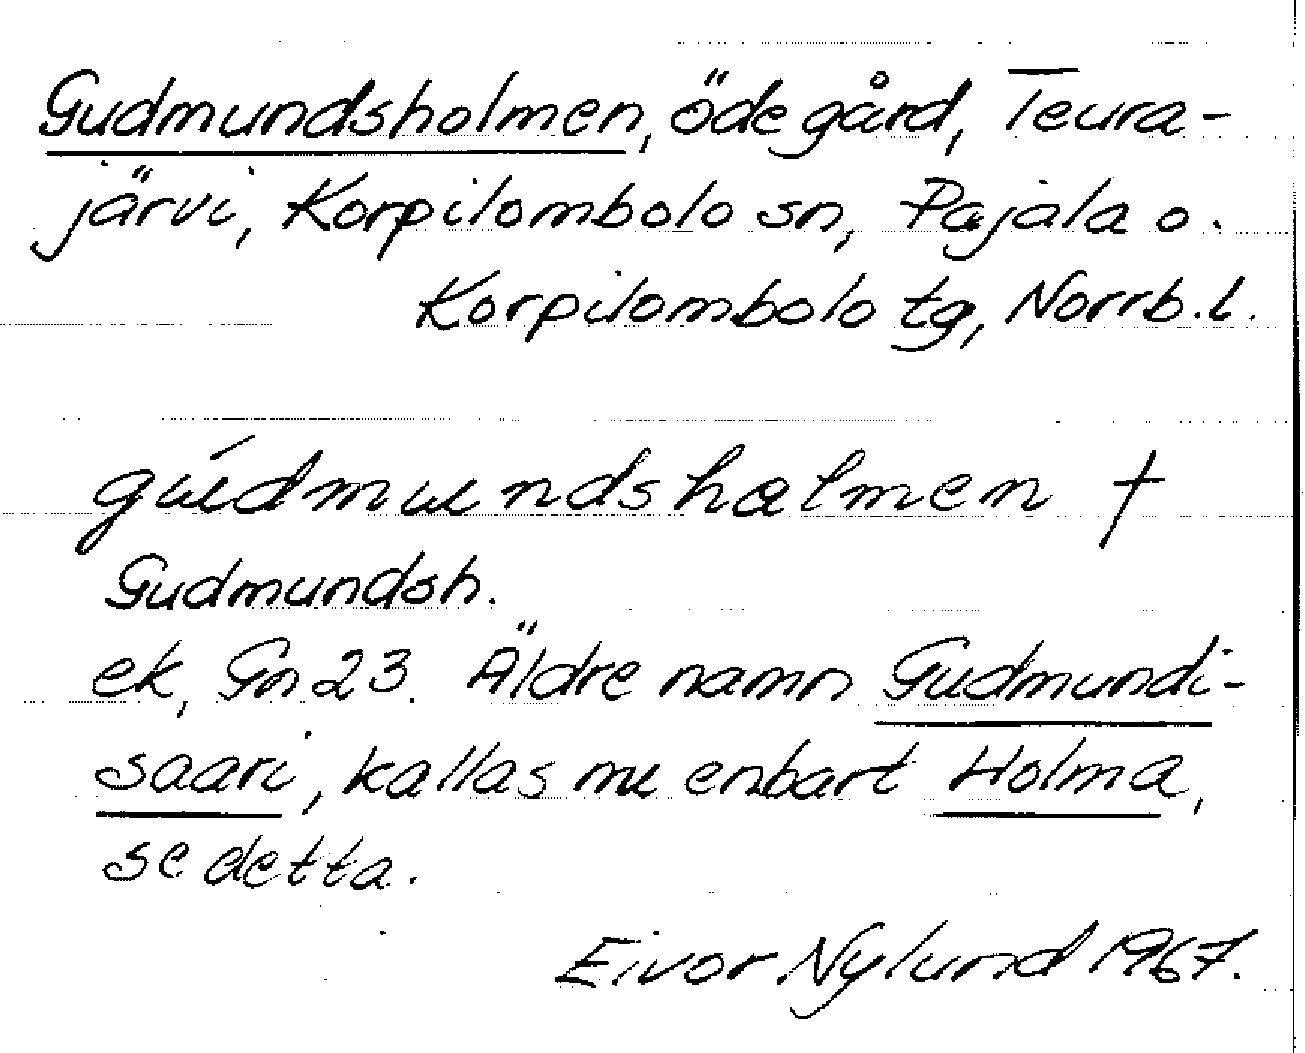 Gudmundsholmen, ödegård, Teura-
järvi, Korpilombolo sn, Pajala o.
Korpilombolo tg, Norrb.l.
gúdmundshɷlmen †
Gudmundsh.
ek, Gn 23. Äldre namn Gudmundi-
saari, kallas nu enbart Holma,
se detta.
Eivor Nylund 1967.